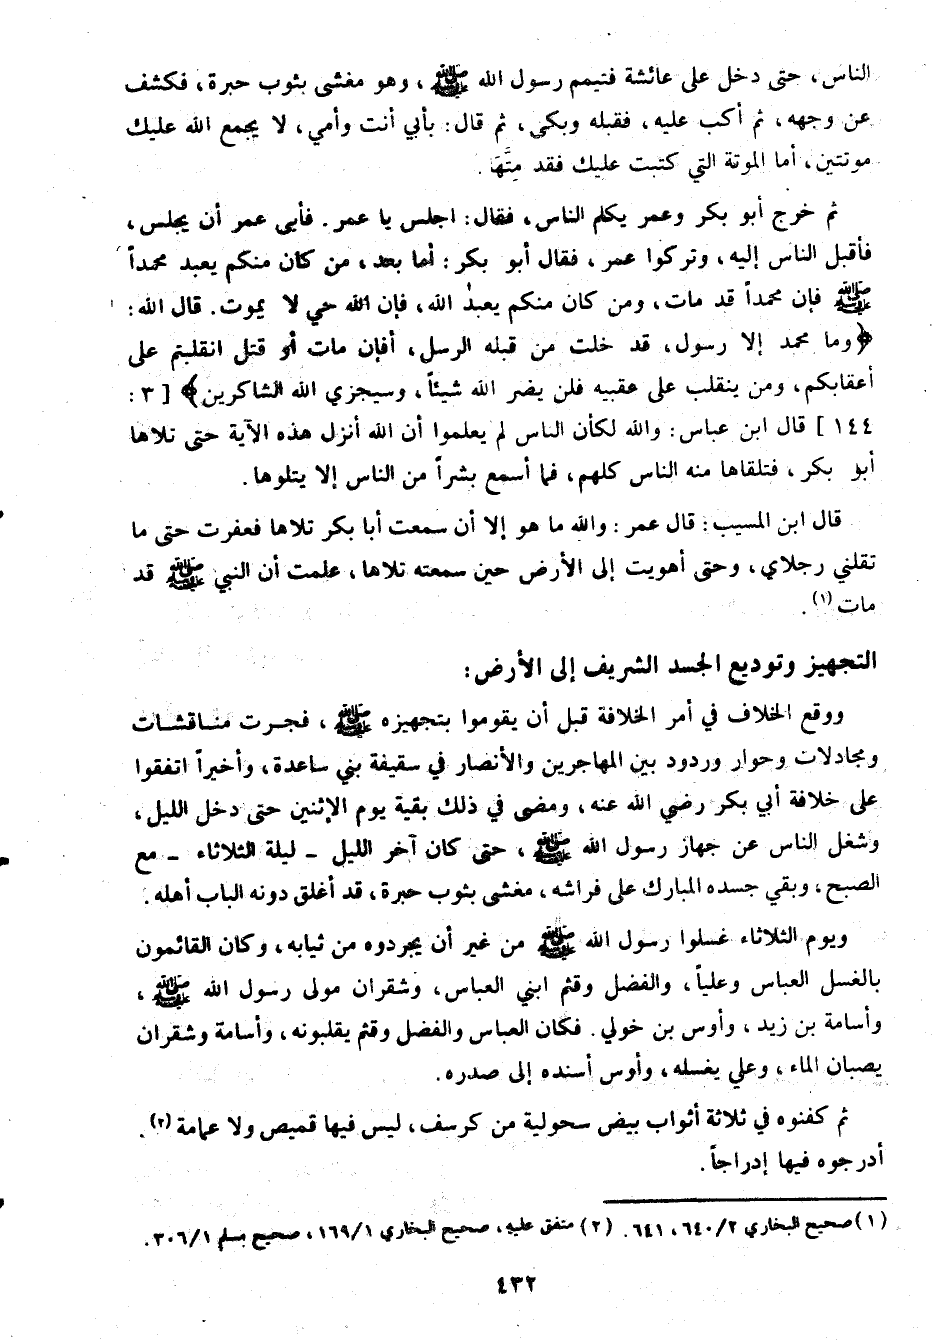 الناس، حتى دخل على عائشة فتيمم رسول الله ﷺ، وهو مغشى بثوب حبرة، فكشف
عن وجهه، ثم أكب عليه، فقبله وبكى، ثم قال: بأبي أنت وأمي، لا يجمع الله عليك
موتتين، أما الموتة التي كتبت عليك فقد مِتَّهَا.
ثم خرج أبو بكر وعمر يكلم الناس، فقال: اجلس يا عمر. فأبى عمر أن يجلس،
فأقبل الناس إليه، وتركوا عمر، فقال أبو بكر: أما بعد، من كان منكم يعبد محمداً
ﷺ فإن محمداً قد مات، ومن كان منكم يعبد الله، فإن الله حي لا يموت. قال الله:
﴿وما محمد إلا رسول، قد خلت من قبله الرسل، أفإن مات أو قتل انقلبتم على
أعقابكم، ومن ينقلب على عقبيه فلن يضر الله شيئاً، وسيجزي الله الشاكرين﴾ [٣:
١٤٤] قال ابن عباس: والله لكأن الناس لم يعلموا أن الله أنزل هذه الآية حتى تلاها
أبو بكر، فتلقاها منه الناس كلهم، فما أسمع بشراً من الناس إلا يتلوها.
قال ابن المسيب: قال عمر: والله ما هو إلا أن سمعت أبا بكر تلاها فعفرت حتى ما
تقلني رجلاي، وحتى أهويت إلى الأرض حين سمعته تلاها، علمت أن النبي ﷺ قد
مات (١).
التجهيز وتوديع الجسد الشريف إلى الأرض:
ووقع الخلاف في أمر الخلافة قبل أن يقوموا بتجهيزه ﷺ، فجرت مناقشات
ومجادلات وحوار وردود بين المهاجرين والأنصار في سقيفة بني ساعدة، وأخيراً اتفقوا
على خلافة أبي بكر رضي الله عنه، ومضى في ذلك بقية يوم الإثنين حتى دخل الليل،
وشغل الناس عن جهاز رسول الله ﷺ، حتى كان آخر الليل - ليلة الثلاثاء - مع
الصبح، وبقي جسده المبارك على فراشه، مغشى بثوب حبرة، قد أغلق دونه الباب أهله.
ويوم الثلاثاء غسلوا رسول الله ﷺ من غير أن يجردوه من ثيابه، وكان القائمون
بالغسل العباس وعلياً، والفضل وقثم ابني العباس، وشقران مولى رسول الله ﷺ،
وأسامة بن زيد، وأوس بن خولي. فكان العباس والفضل وقثم يقلبونه، وأسامة وشقران
يصبان الماء، وعلي يغسله، وأوس أسنده إلى صدره.
ثم كفنوه في ثلاثة أثواب بيض سحولية من كرسف، ليس فيها قميص ولا عمامة (٢).
أدرجوه فيها إدراجاً.
(١) صحيح البخاري ٦٤٠/٢، ٦٤١. (٢) متفق عليه، صحيح البخاري ١٦٩/١، صحيح مسلم ٣٠٦/١.
٤٣٢